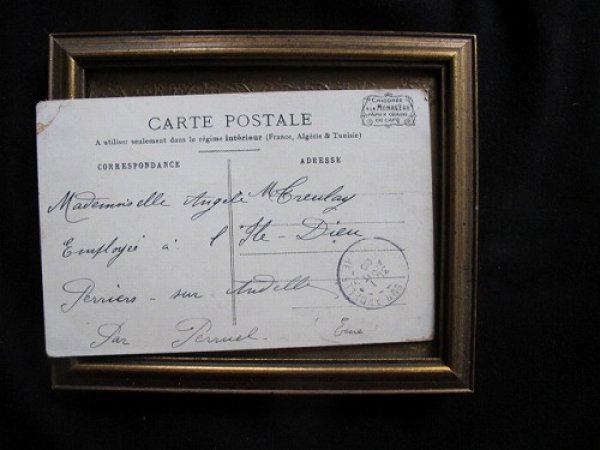 CARTE POSTALE
A utiliser seulement dans le régime intérieur (France, Algérie & Tunisie)
CORRESPONDANCE
ADRESSE
CHICORÉE
A LA MÉNAGÈRE
Mademoiselle Angèle
Employée à l'Ile-Dieu
Perriers-sur Andelle
Par Perruel Eure
SUR-ANDELLE